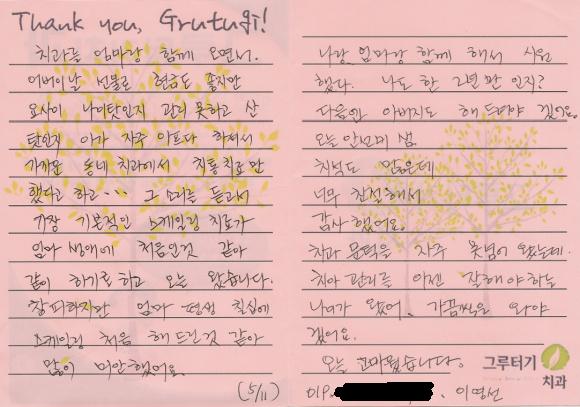 Thank you, Grutugi!
치과를 엄마랑 함께 오면서.
어버이날 선물로 현금도 좋지만
요사이 나이탓인지 관리 못하고 산
탓인지 이가 자주 아프다 하셔서
가까운 동네 치과에서 치통치료만
했다고 하고… 그 소리를 듣고서
가장 기본적인 스케일링 치료가
엄마 생애에 처음인것 같아
같이 하기로하고 오늘 왔습니다.
창피하지만 엄마 평생 칠십에
스케일링 처음 해드린것 같아
많이 미안했어요.
(5/11)
나랑 엄마랑 함께 해서 시원
했다. 나도 한 2년만 인지?
다음엔 아버지도 해드려야 겠어요.
오늘 안선미 샘
치석도 많은데
너무 친절해서
감사했어요.
치과 문턱을 자주 못넘어 왔는데.
치아관리를 이젠 잘해야하는
나이가 왔어, 가끔씩은 와야
겠어요.
오늘 고마웠습니다.
이영선
그루터기
치과